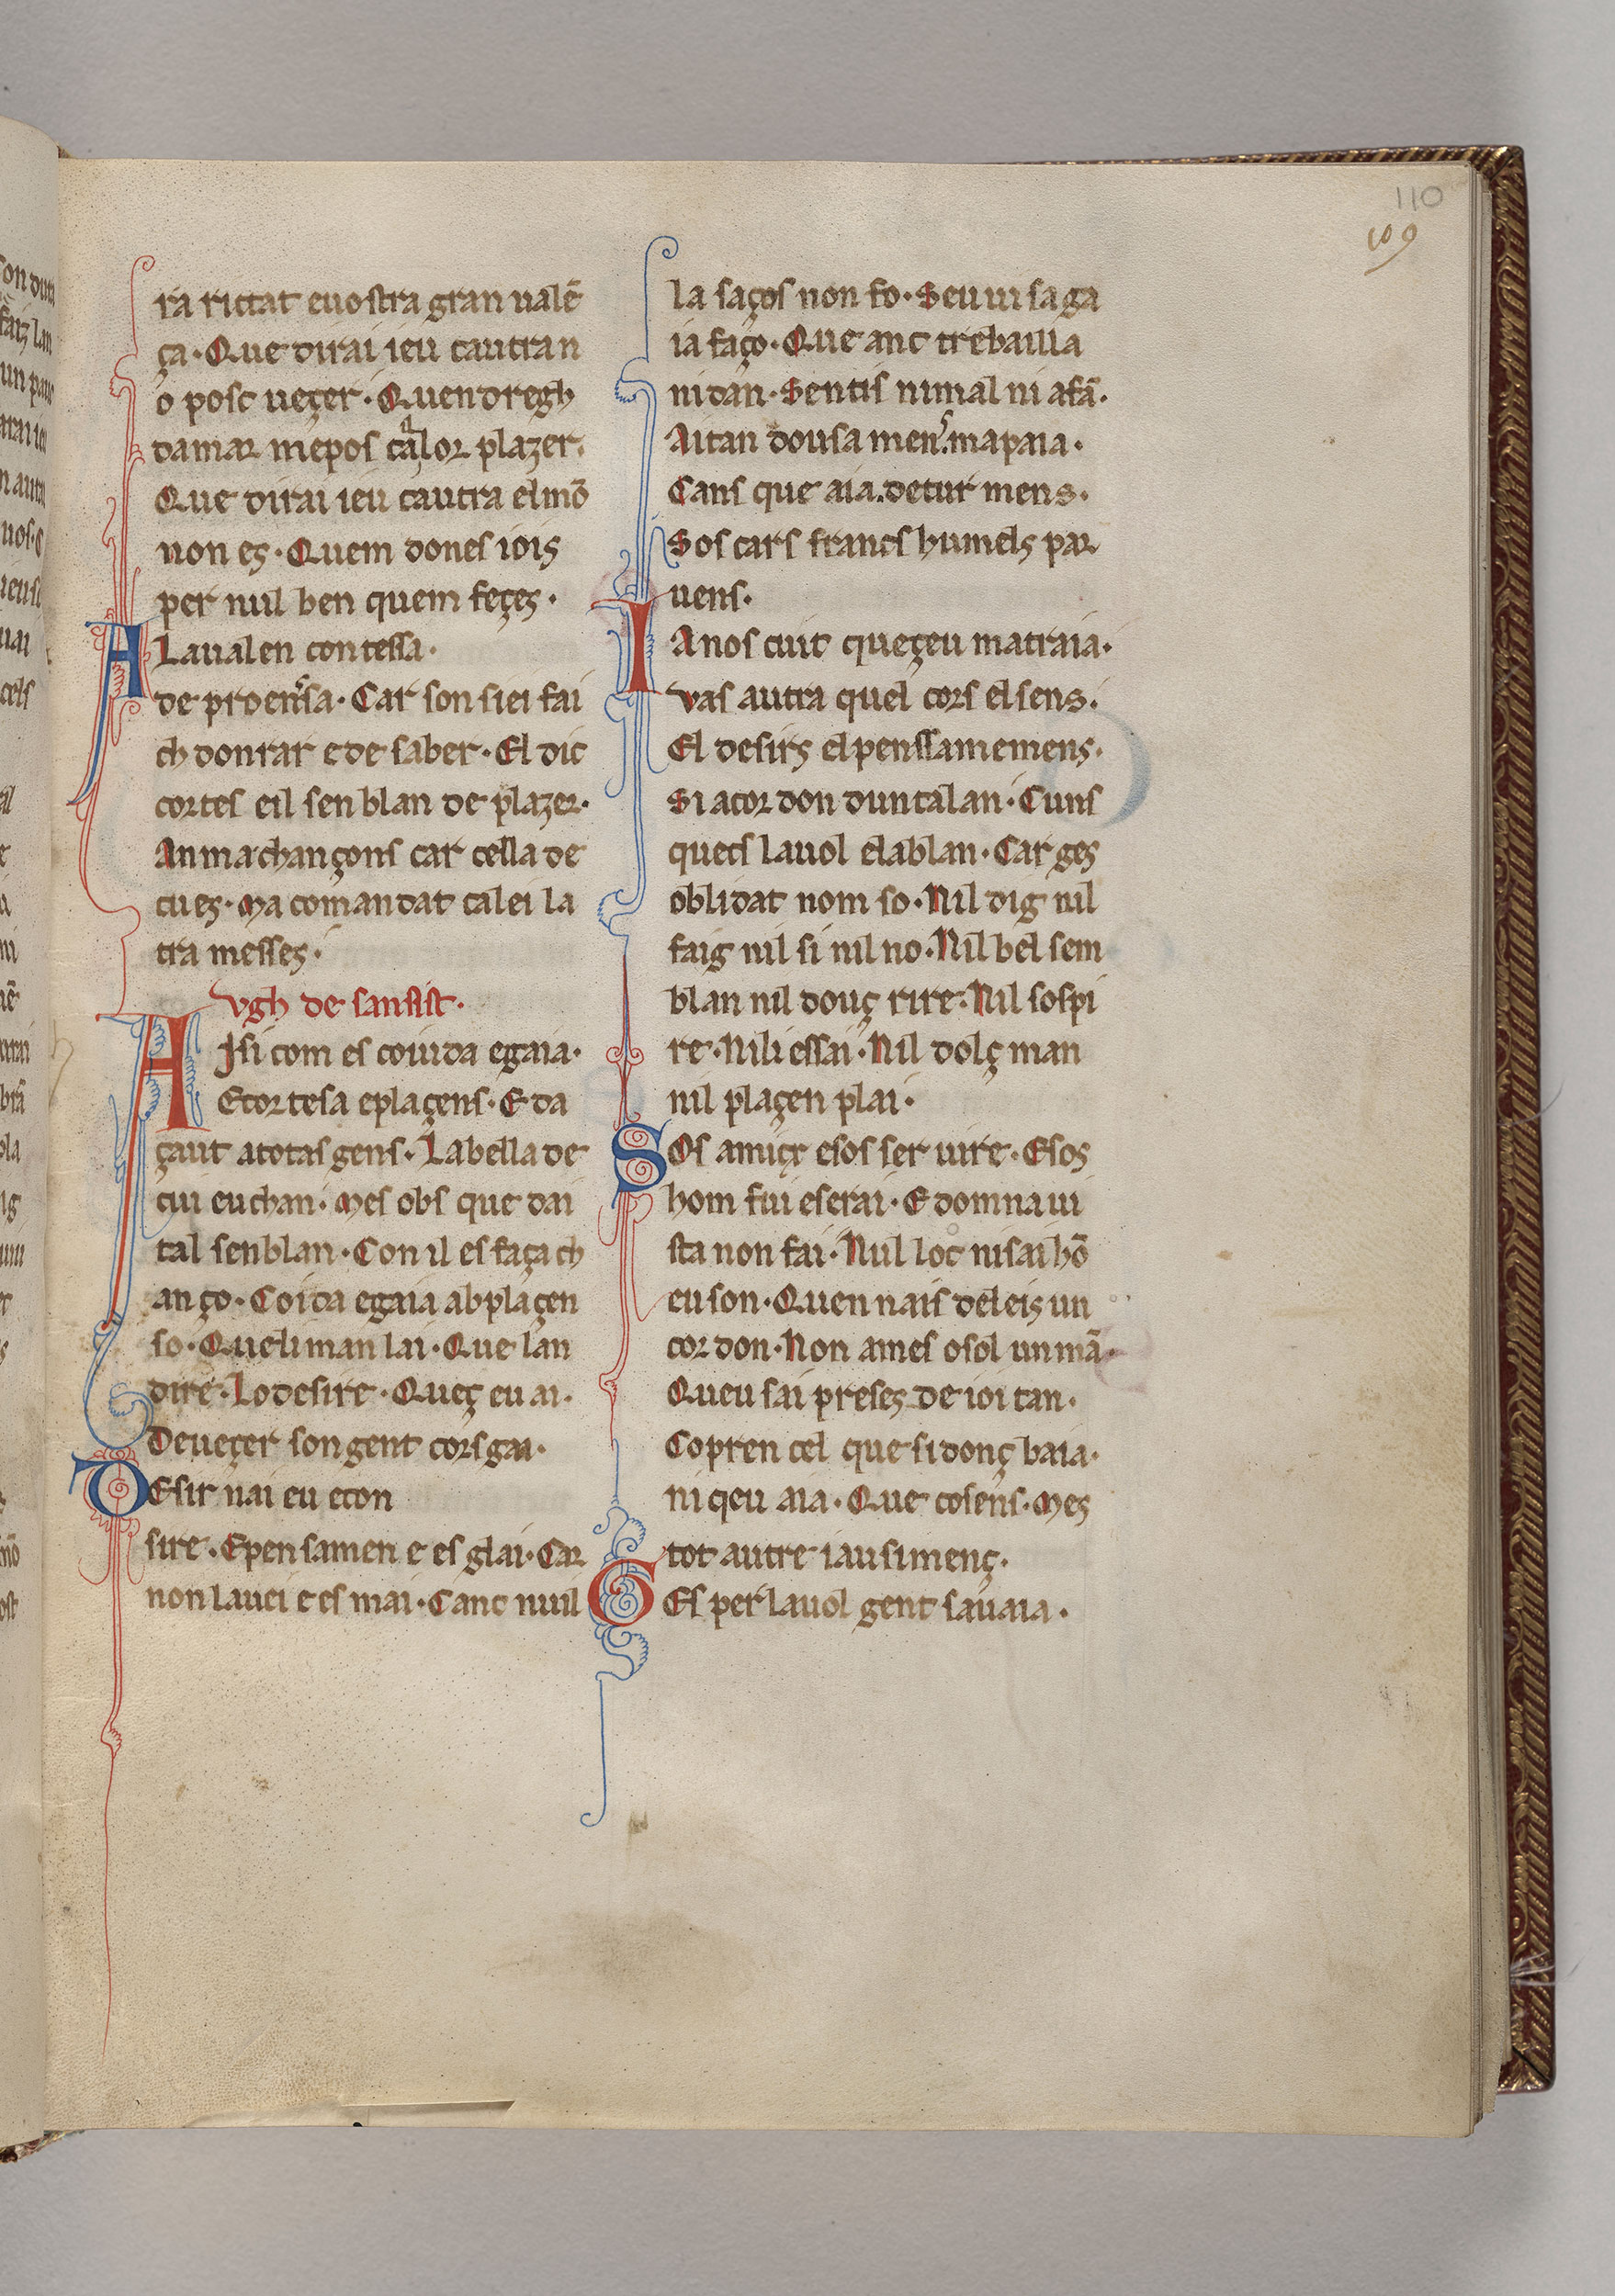 110
109
ra rictat euostra gran ualē
ça · Que dirai ieu cautran
o posc ueçer · Quen dregh
damar mepos calor plazer ·
Que dirai ieu cautra el mō
non es · Quem dones iois
per nuil ben quem feçes ·
A Laualen contessa ·
de proensa · Car son siei fai
ch donrar e de saber · El dic
cortes eil senblan de plazer ·
An ma chançons car cella de
cui es · Ma comandat calei la
tra messes ·
Vgh de sansist ·
AIsi com es couida egaia ·
E cortesa eplaçens · E da
çaut atotas gens · La bella de
cui eu chan · Mes obs que dai
tal senblan · Con il es faça ch
anço · Coida egaia ab plaçen
so · Queli man lai · Que lan
dire · Lo desire · Queç eu ai ·
De ueçer son gent cors gai ·
DEsir nai eu econ
sire · E pensamen e esglai · Car
non lauei e es mai · Canc nuil
la saços non fo · Seu ui sa ga
ia faço · Que anc trebailla
ni dan · Sentis ni mal ni afā ·
Aitan dousamens ma paia ·
Cans que aia . detur mens ·
Sos cars francs humels par
uens ·
IA nos cuit queçeu matraia ·
Vas autra quel cors el sens ·
El desirs el penssamemens ·
Si acor don dun talan · Cuns
quecs lauol e lablan · Car ges
oblidat nom so · Nil dig nil
faig nil si nil no · Nil bel sem
blan nil douç rire · Nil sospi
re · Nili essai · Nil dolç man
nil plaçen plai ·
SOs amicx e sos ser uire · E sos
hom fui e serai · E domna ui
sta non fai · Nul loc ni sai hō
eu son · Quen nais de leis un
cor don · Non ames o sol un mā ·
Queu sai preses de ioi tan ·
Co pren cel que si donç baia ·
ni qeu aia · Que cosens · Mes
tot autre iausimenç ·
GEs per lauol gent sauaia ·